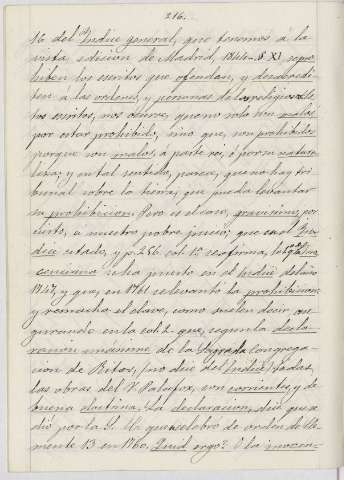 216.
16 del Indice general, que tenemos á la
vista, edicion de Madrid, 1844. P. XI, se pro-
hiben los escritos que ofendan, y desacredi-
ten á las ordenes, y personas de los religiosos. Es-
tos escritos, nos ocurre, que no solo son malos
por estar prohibido, sino que, son prohibidos
porque son malos, á parte rei, ó por su natura-
leza; y en tal sentido, parece, que no hay tri-
bunal sobre la tierra, que pueda levantar
su prohibicion. Pero es el caso, gravisimo, por
cierto, á nuestro pobre juicio, que en el Ín-
dice citado, y p. 256 col. 1ª se afirma, la
cenciana salia puesta en el Indice del año
1747, y que, en 1761 se levantó la prohibicion,
y remacha el clavo, como suelen decir, ase-
gurando en la col. 2. que, segun la decla-
racion unánime de la Sagrada Congrega-
cion de Ritos, (no dice del Indice), todas
las obras del V. Palafox, son corrientes, y de
buena doctrina. La declaracion, dice que se
dió por la S. C. que celebro de orden de Cle-
mente 13 en 1760. Quid ergo? O la inocen-